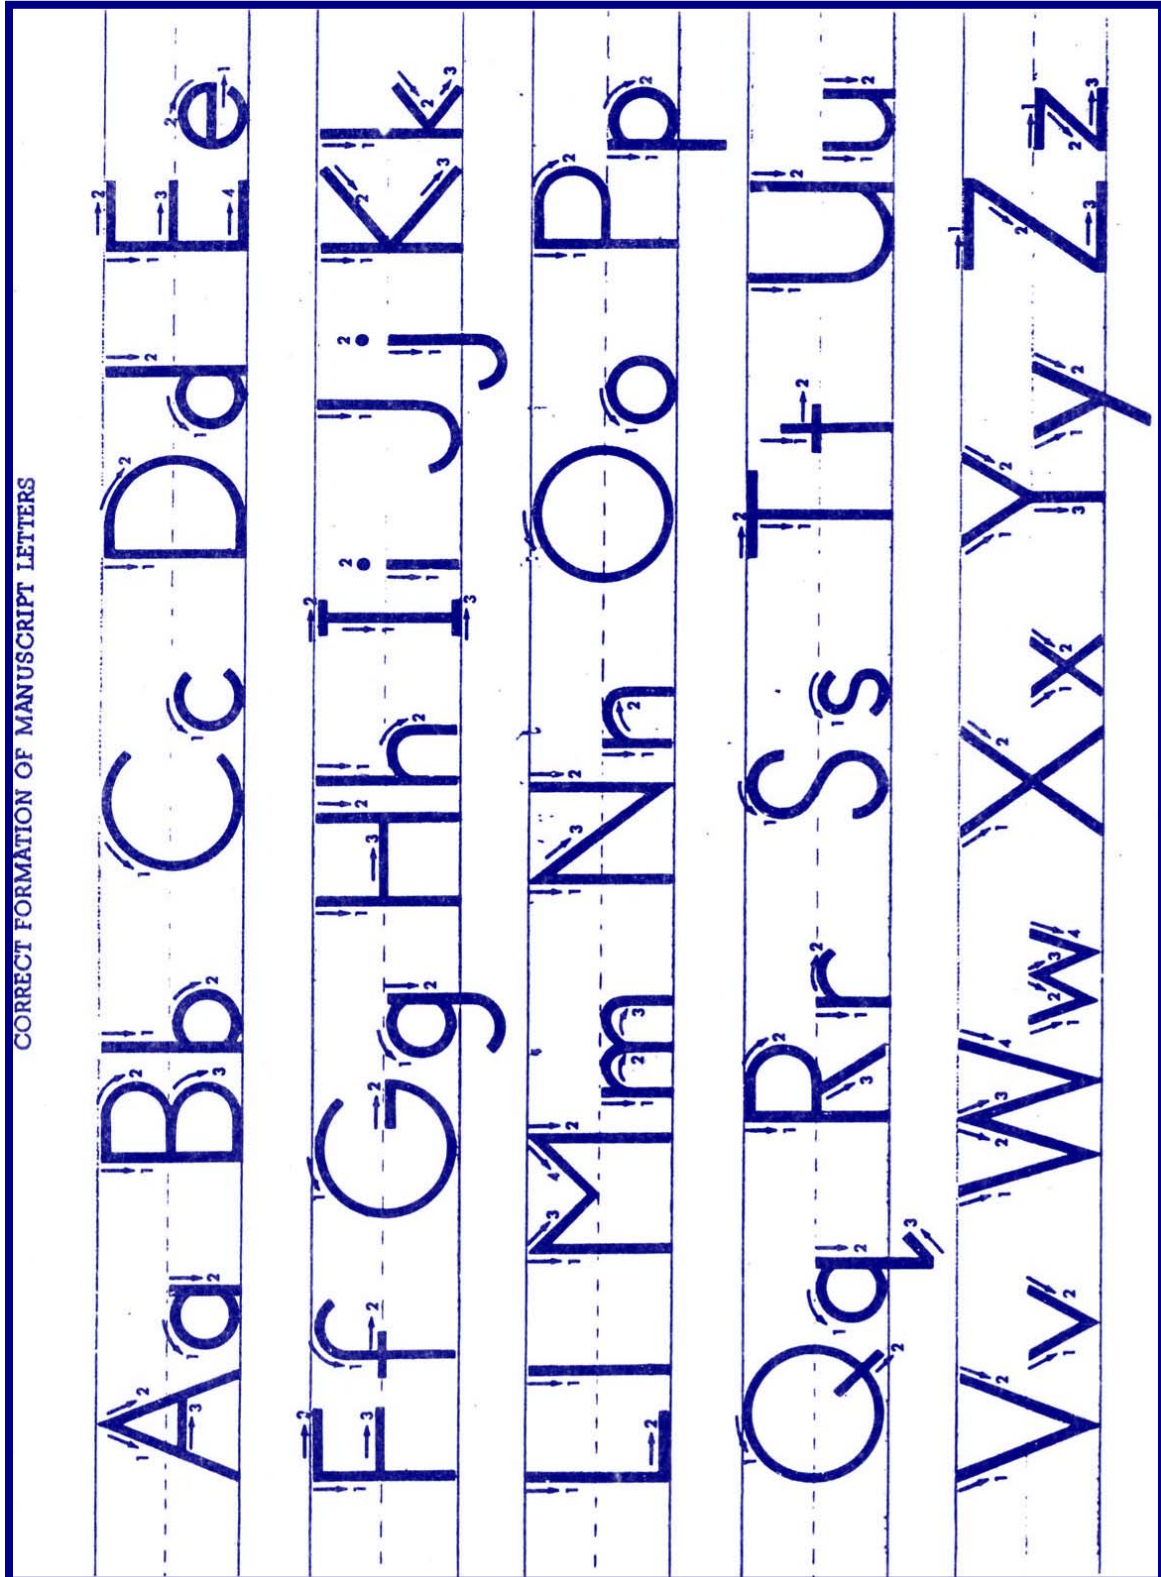 CORRECT FORMATION OF MANUSCRIPT LETTERS
A a B b C c D d E e
F f G g H h I i J j K k
L l M m N n O o P p
Q q R r S s T t U u
V v W w X x Y y Z z